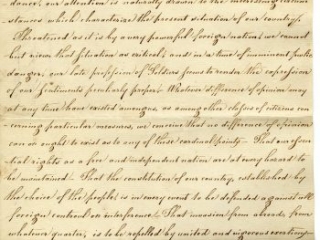 dance, our attention is naturally drawn to the interesting circum
stances which characterize the present situation of our country.
Threatened as it is by a very powerful foreign nation, we cannot
but view that situation as critical, and in a time of imminent public
danger, our late profession of Soldiers seems to render the expression
of our Sentiments peculiarly proper. Whatever difference of opinion may
at any time have existed amongus, or among other classes of citizens con
cerning particular measures, we conceive that no difference of opinion
can or ought to exist as to any of these cardinal points— That our essen
tial rights as a free and independent nation are at every hazard to
be maintained. That the constitution of our country, established by
the choice of the people, is in every event to be defended against all
foreign controul or interference. That invasion from abroad, from
whatever quarter, is to be repelled by united and vigorous exertions